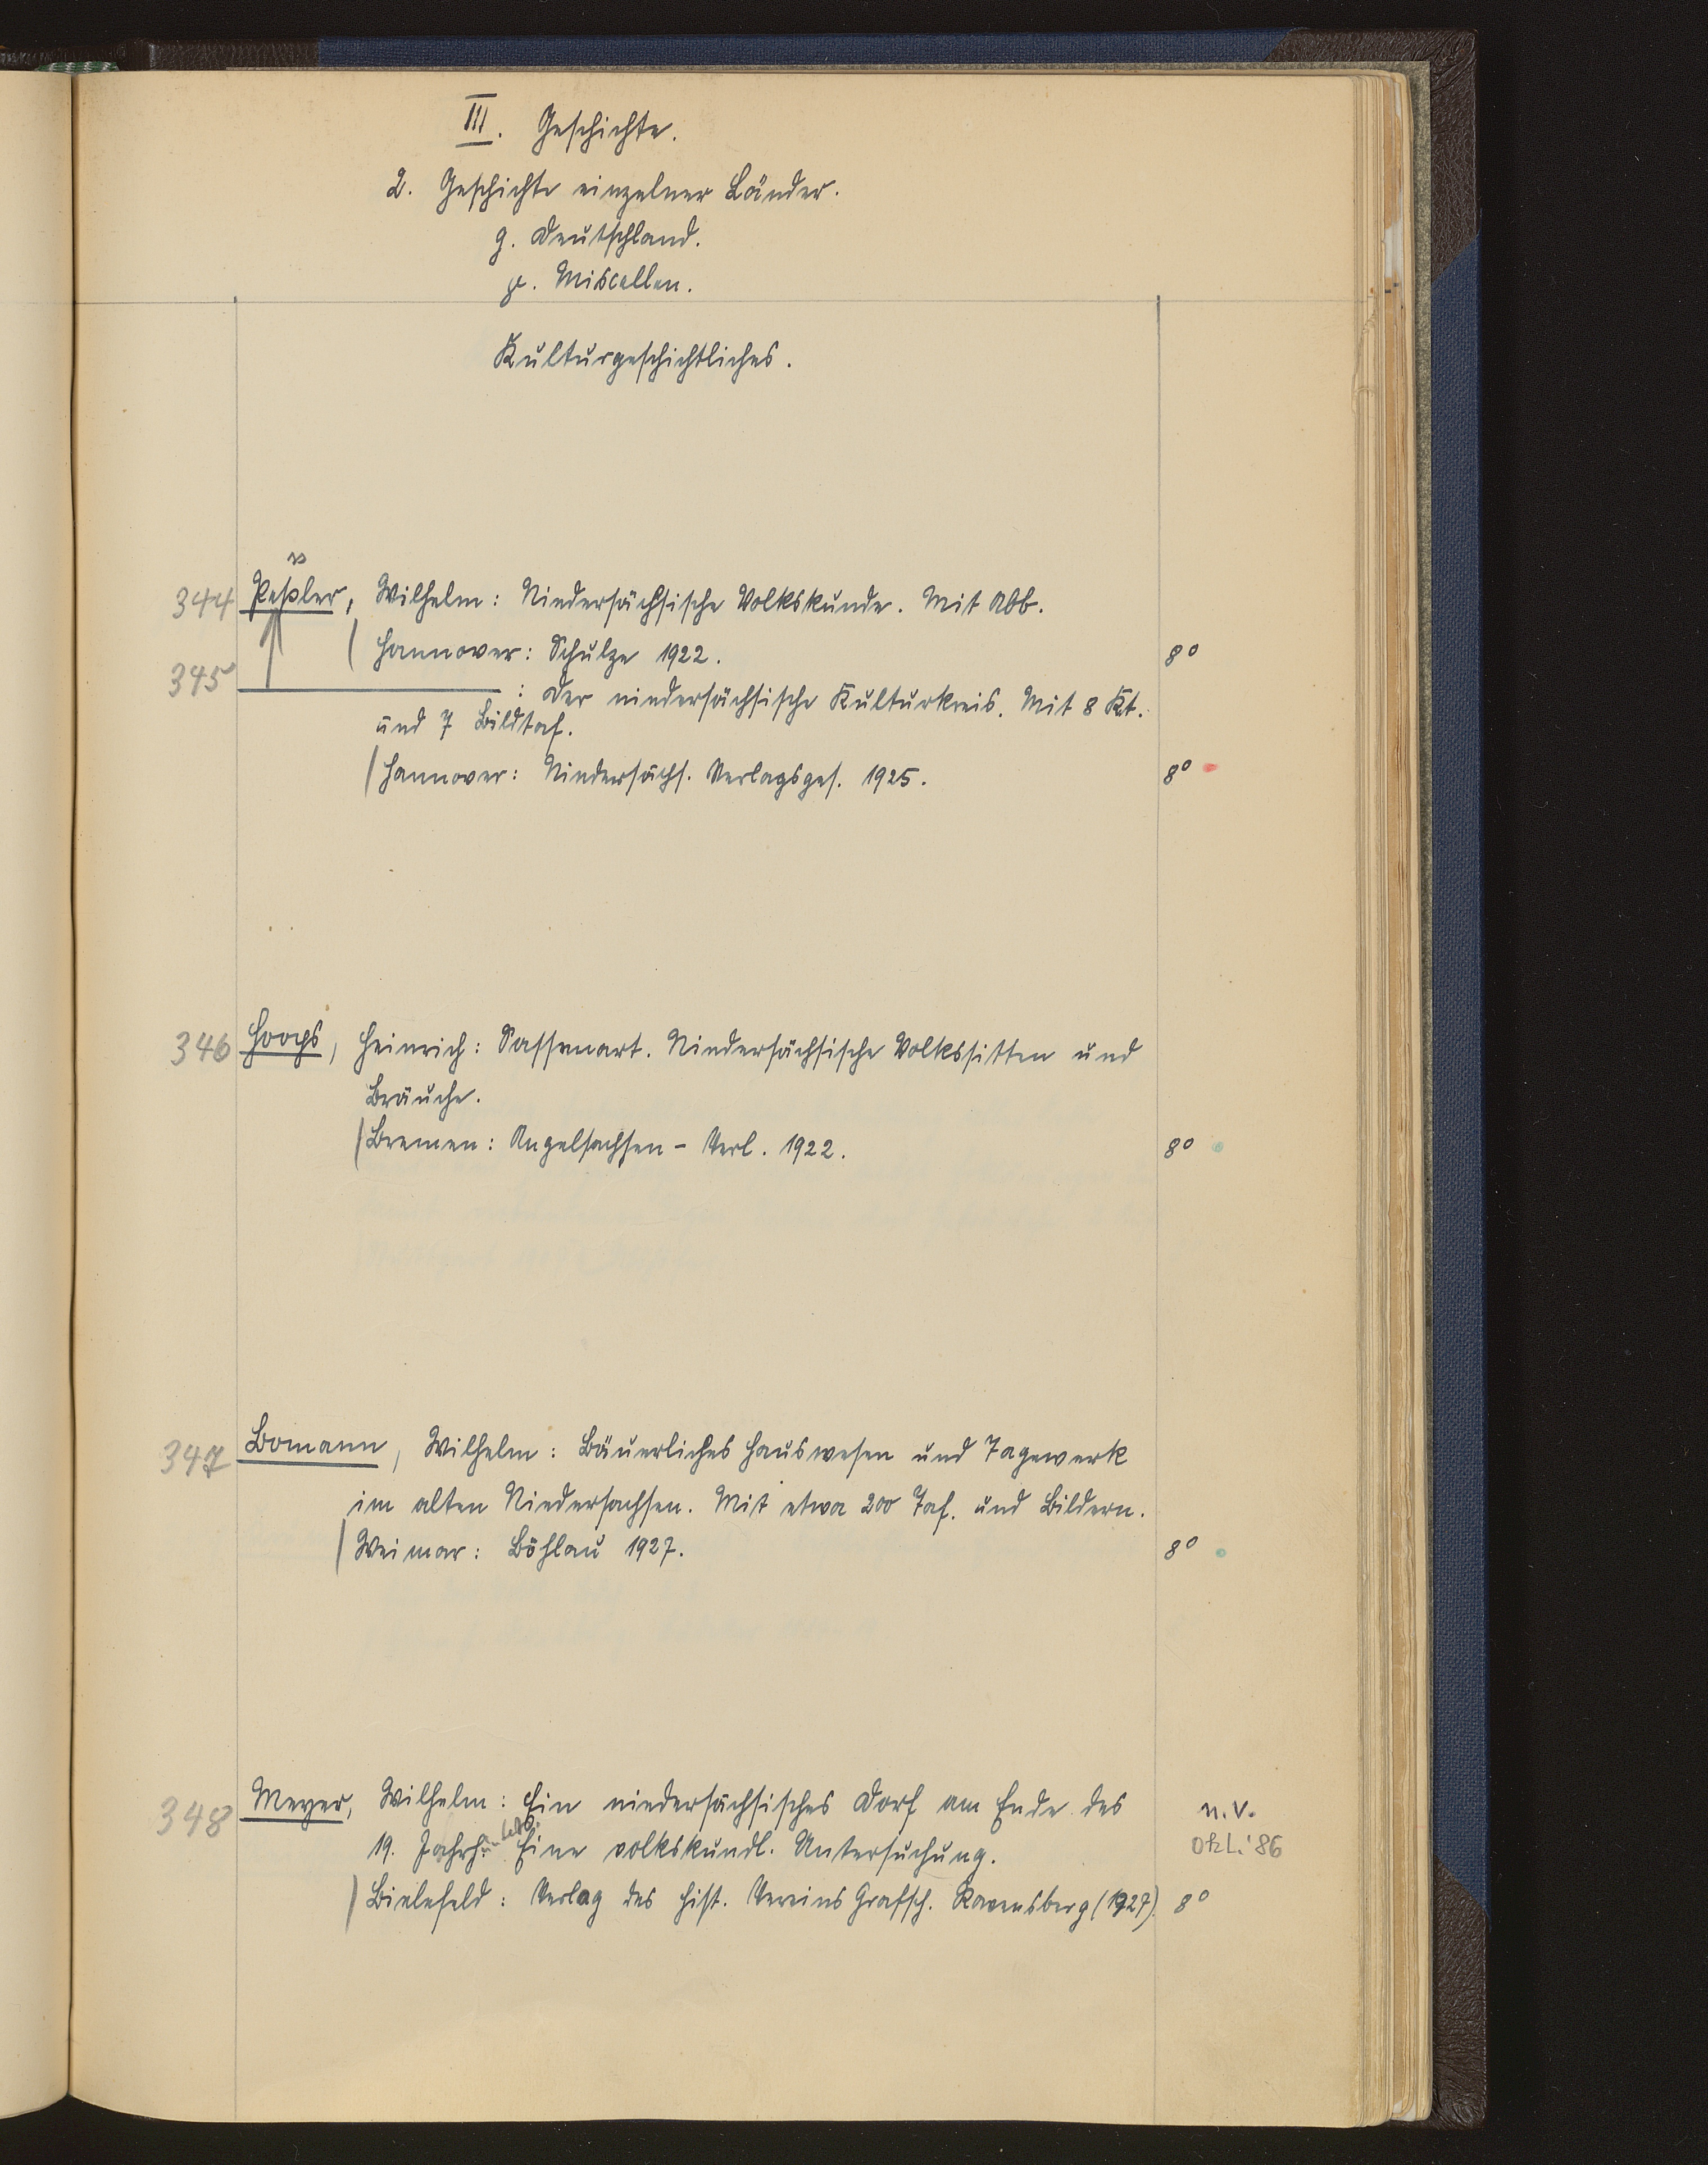 III. Geschichte.
2. Geschichte einzelner Länder.
g. Deutschland.
Miscellen.
Kulturgeschichtliches.
344 Peßler, Wilhelm: Niedersächsische Volkskunde. Mit Abb.
Hannover: Schulze 1922. 8°
345 ———: Der niedersächsische Kulturkreis. Mit 8 Kt.
und 7 Bildtaf.
Hannover: Niedersächs. Verlagsges. 1925. 8°
346 Hoops, Heinrich: Sassenart. Niedersächsische Volkssitten und
Bräuche.
Bremen: Angelsachsen-Verl. 1922. 8°
347 Bomann, Wilhelm: Bäuerliches Hauswesen und Tagewerk
im alten Niedersachsen. Mit etwa 200 Taf. und Bildern.
Weimar: Böhlau 1927. 8°
348 Meyer, Wilhelm: Ein niedersächsisches Dorf am Ende des
n.v.
19. Jahrh. Eine volkskundl. Untersuchung.
Okt. '86
Bielefeld: Verlag des Hist. Vereins Grafsch. Ravensberg (1927). 8°